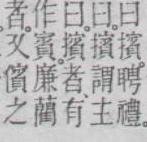 曰擯聘禮。
曰。擯謂主
曰。擯者、有
作賓。廉藺
者。又儐之